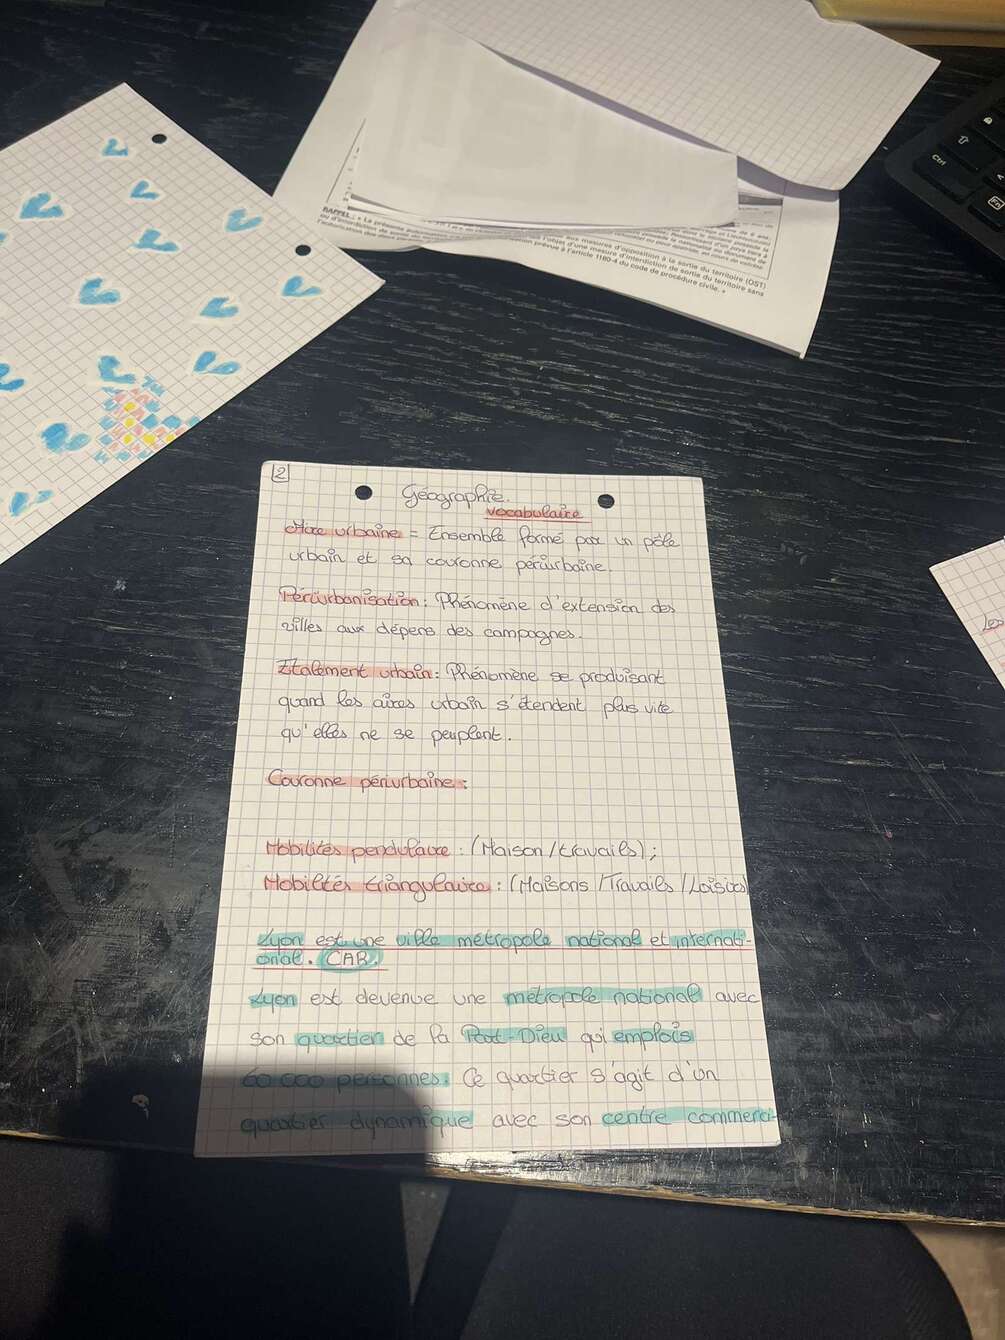 RAPPEL : « La présente
ou d'interdiction de
mesures d'opposition à la sortie du territoire (OST)
l'objet d'une mesure d'interdiction de sortie du territoire sans
prévue à l'article 1180-4 du code de procédure civile. »
Ctrl
Fn
A
2
Géographie.
vocabulaire
Aire urbaine = Ensemble formé par un pôle
urbain et sa couronne périurbaine.
Périurbanisation : Phénomène d'extension des
villes aux dépens des campagnes.
Etalement urbain : Phénomène se produisant
quand les aires urbain s'étendent plus vite
qu'elles ne se peuplent.
Couronne périurbaine :
Mobilités pendulaire : (Maison/travails) ;
Mobilités triangulaire : (Maisons/Travails/Loisirs)
Lyon est une ville métropole national et internati-
onal. CAR.
Lyon est devenue une métropole national avec
son quartier de la Part-Dieu qui emplois
60 000 personnes. Ce quartier s'agit d'un
quartier dynamique avec son centre commerci-